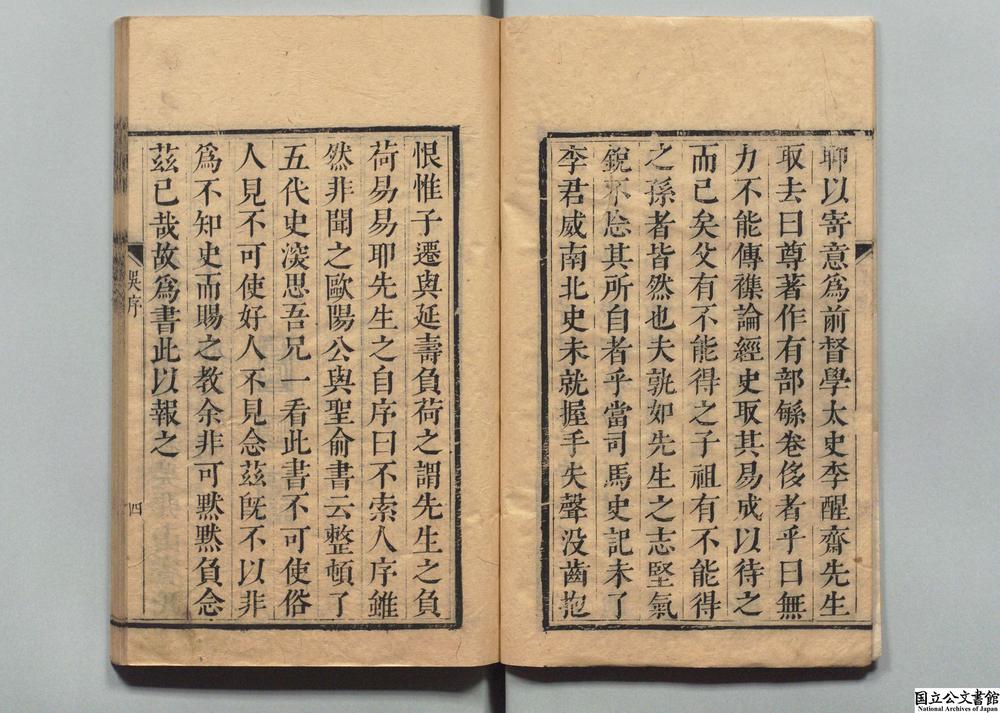 聊以寄意為前督學太史李醒齋先生
取去曰尊著作有部鯀卷侈者乎曰無
力不能傳襍論經史取其易成以待之
而已矣父有不能得之子祖有不能得
之孫者皆然也夫孰如先生之志堅氣
銳不忘其所自者乎當司馬史記未了
李君威南北史未就握手失聲没齒抱
恨惟子遷與延壽負荷之謂先生之負
荷易易耶先生之自序曰不索人序雖
然非聞之歐陽公與聖俞書云整頓了
五代史湥思吾兄一看此書不可使俗
人見不可使好人不見念茲旣不以非
為不知史而賜之教余非可黙黙負念
茲已哉故為書此以報之
吳序
四
国立公文書館
National Archives of Japan